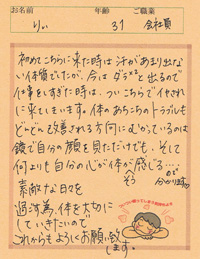 お名前 年齢 ご職業
りぃ 31 会社員
初めてこちらに来た時は汗があまり出な
い体質でしたが、今はダラダラと出るので
仕事をすぎた時は、ついこちらでイヤされ
に来てしまいます。体のあちこちのトラブルも
どんどん改善される方向にむかっているのは
鏡で自分の顔を見ただけでも、そして
何よりも自分の心が体が感じる‥‥ので
そう 分かります
素敵な日々を
過す為、体を大切に
していきたいので
これからもよろしくお願い致
します。